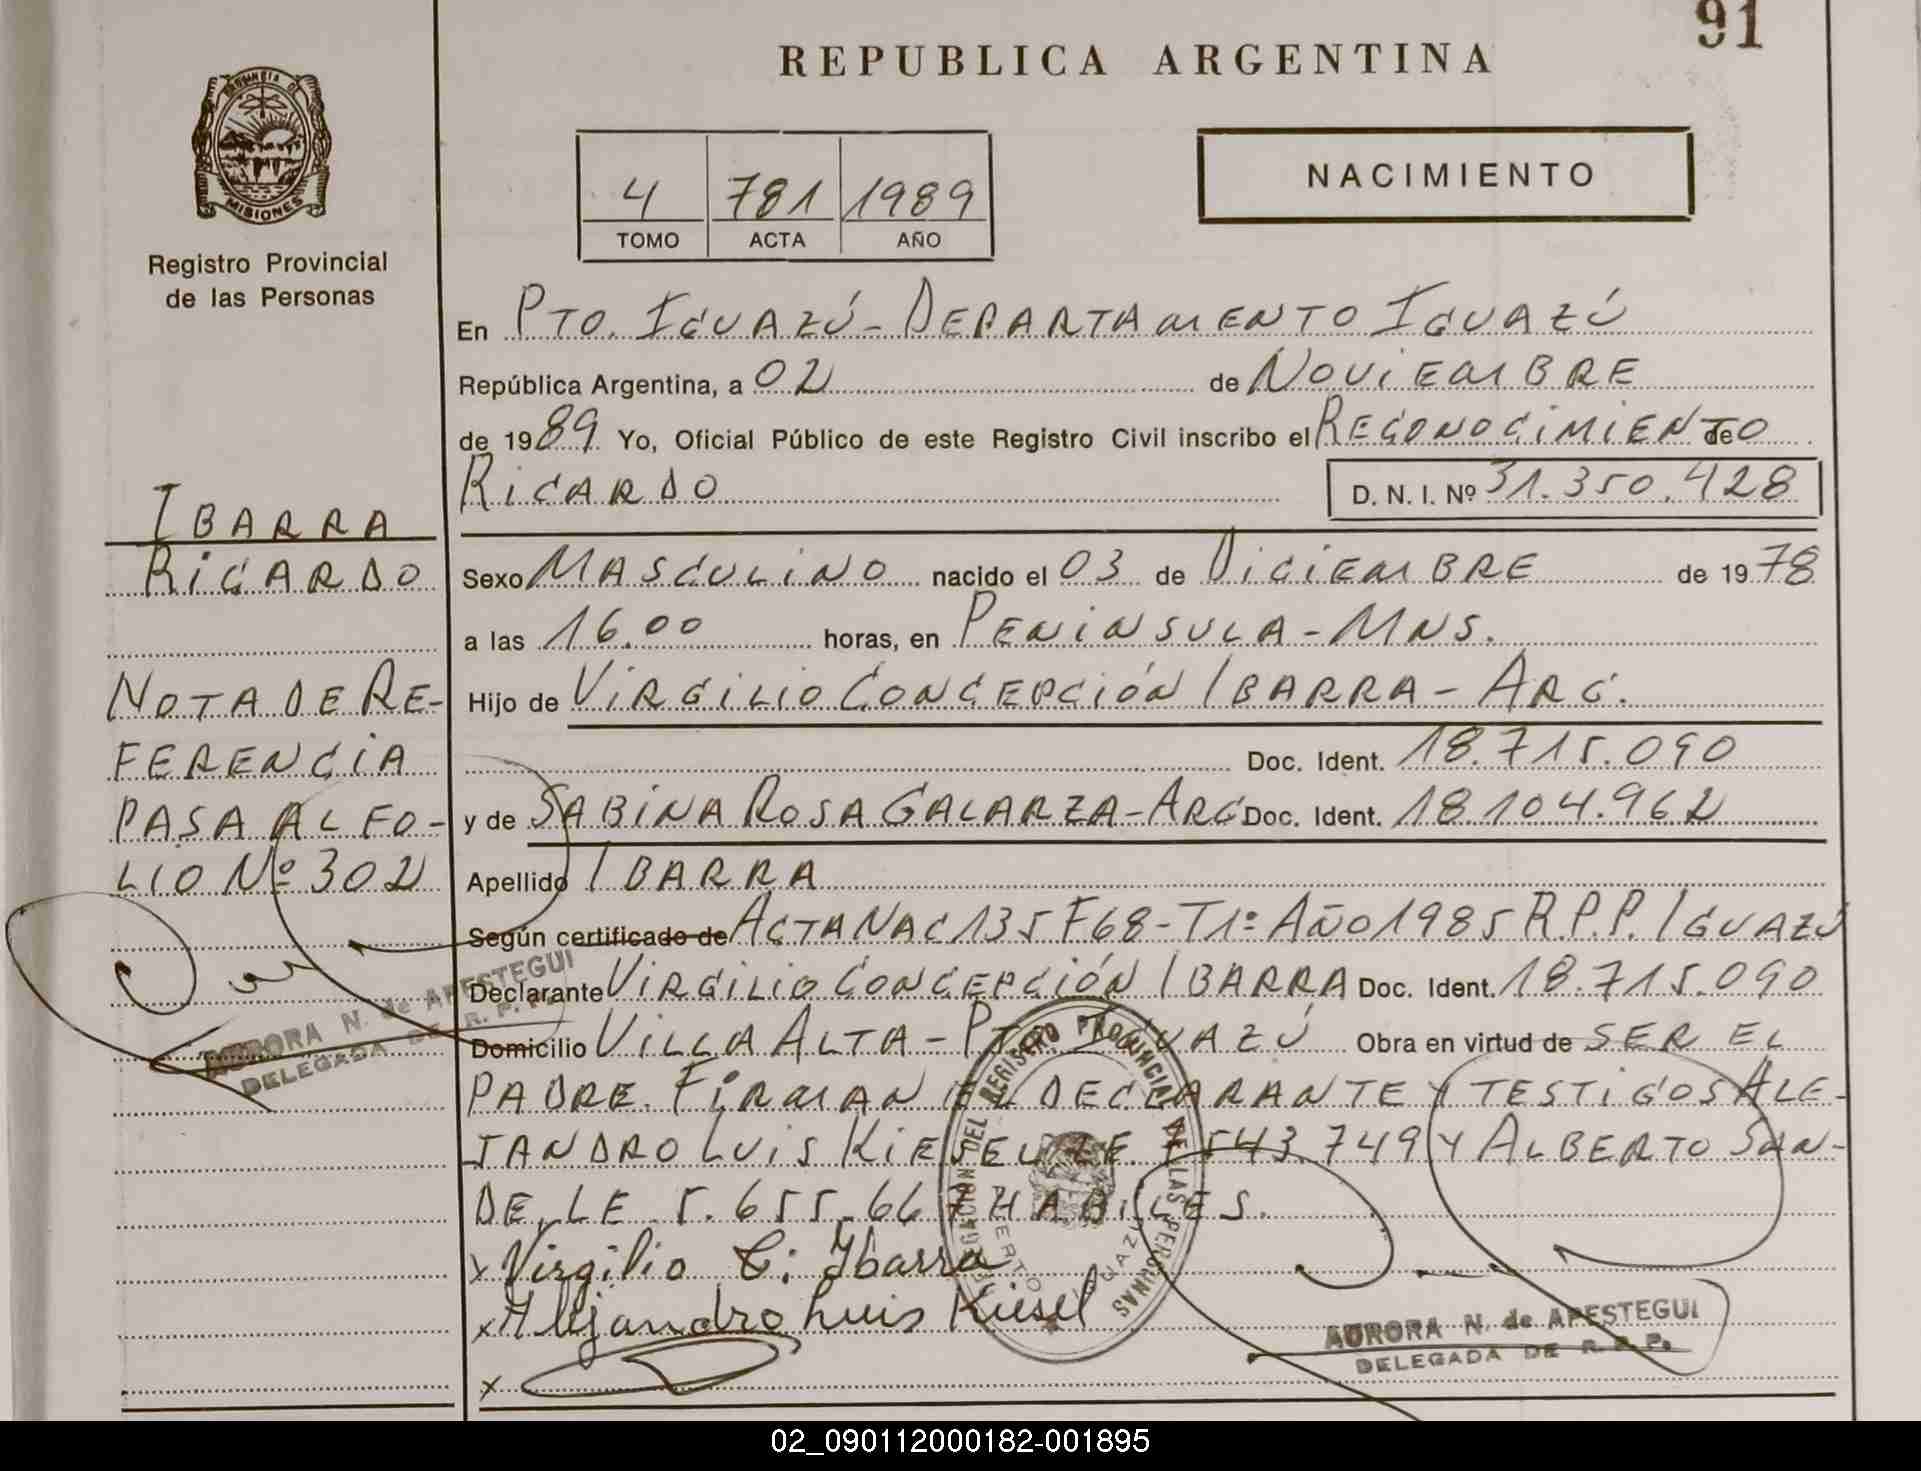 91
REPUBLICA ARGENTINA
PROVINCIA DE
MISIONES
Registro Provincial
de las Personas
4 781 1989
TOMO ACTA AÑO
NACIMIENTO
En PTO. IGUAZÚ - DEPARTAMENTO IGUAZÚ
República Argentina, a 02 de NOVIEMBRE
de 1989 Yo, Oficial Público de este Registro Civil inscribo el RECONOCIMIENTO de
RICARDO D. N. I. Nº 31.350.428
IBARRA
RICARDO
NOTA DE RE-
FERENCIA
PASA AL FO-
LIO Nº 302
AURORA N. de APESTEGUI
DELEGADA DE R. P. P.
Sexo MASCULINO nacido el 03 de DICIEMBRE de 1978
a las 16.00 horas, en PENINSULA - MNS.
Hijo de VIRGILIO CONCEPCIÓN IBARRA - ARG.
Doc. Ident. 18.715.090
y de SABINA ROSA GALARZA - ARG Doc. Ident. 18.104.962
Apellido IBARRA
Según certificado de ACTA NAC 135 F68 - T1º AÑO 1985 R.P.P. IGUAZÚ
Declarante VIRGILIO CONCEPCIÓN IBARRA Doc. Ident. 18.715.090
Domicilio VILLA ALTA - PTO IGUAZÚ Obra en virtud de SER EL
PADRE. FIRMAN EL DECLARANTE Y TESTIGOS ALE-
JANDRO LUIS KIESEL LE. 7543.749 Y ALBERTO SAN-
DE, LE 5.655.667 HABILES.
x Virgilio C. Ibarra
x Alejandro Luis Kiesel
x
DELEGACION DEL REGISTRO PROVINCIAL DE LAS PERSONAS
PUERTO IGUAZU
AURORA N. de APESTEGUI
DELEGADA DE R. P. P.
02_090112000182-001895